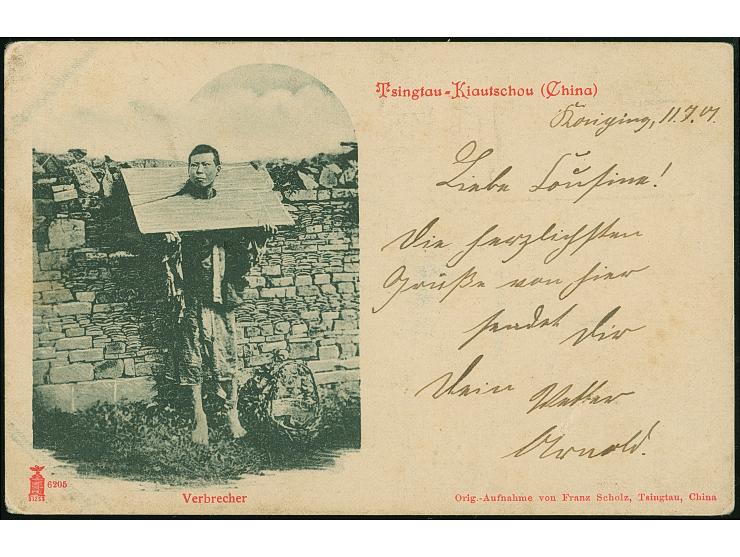 Tsingtau-Kiautschou (China)
11.7.01.
Liebe Cousine!
Die herzlichsten
Grüße von hier
sendet Dir
Dein Vetter
Arnold.
6205
Verbrecher
Orig.-Aufnahme von Franz Scholz, Tsingtau, China